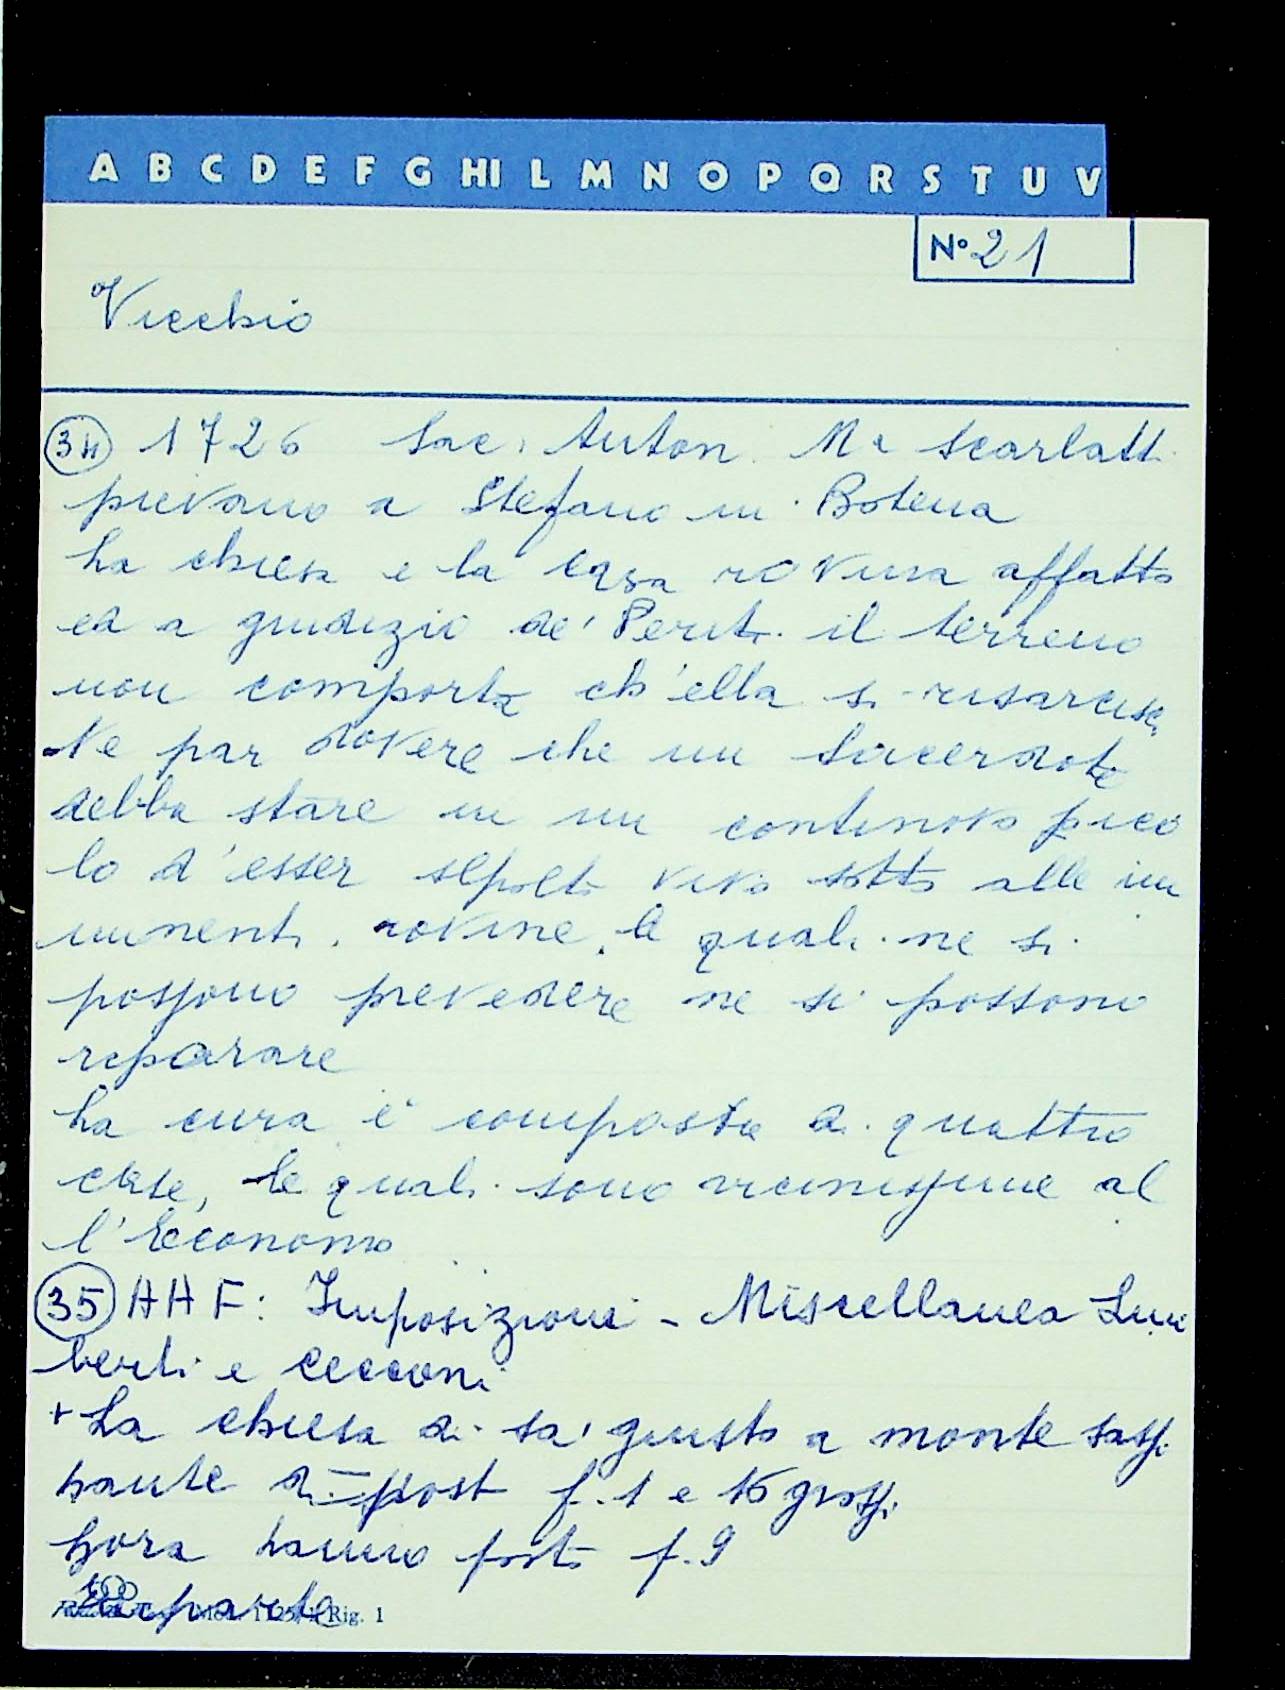 A B C D E F G HI L M N O P Q R S T U V
N° 21
Vicchio
34 1726 Sac. Anton Mª Scarlatti
pievano a Stefano in Botena
La chiesa e la casa rovina affatto
ed a giudizio de' Periti il terreno
non comporta ch'ella si risarcisca
Ne par dovere che un Sacerdote
debba stare in un continovo perico
lo d'esser sepolto vivo sotto alle im
minenti rovine, le quali ne si
possono prevedere ne si possono
reparare
La cura è composta di quattro
case, le quali sono vicinissime al
l'Economo
35 AAF: Imposizioni - Miscellanea Lim
berti e Cecconi
+ La chiesa di sa' Giusto a monte sassi
haute di post f. 1 e 16 grossi
hora hanno posto f. 9
Mod. Rig. 1